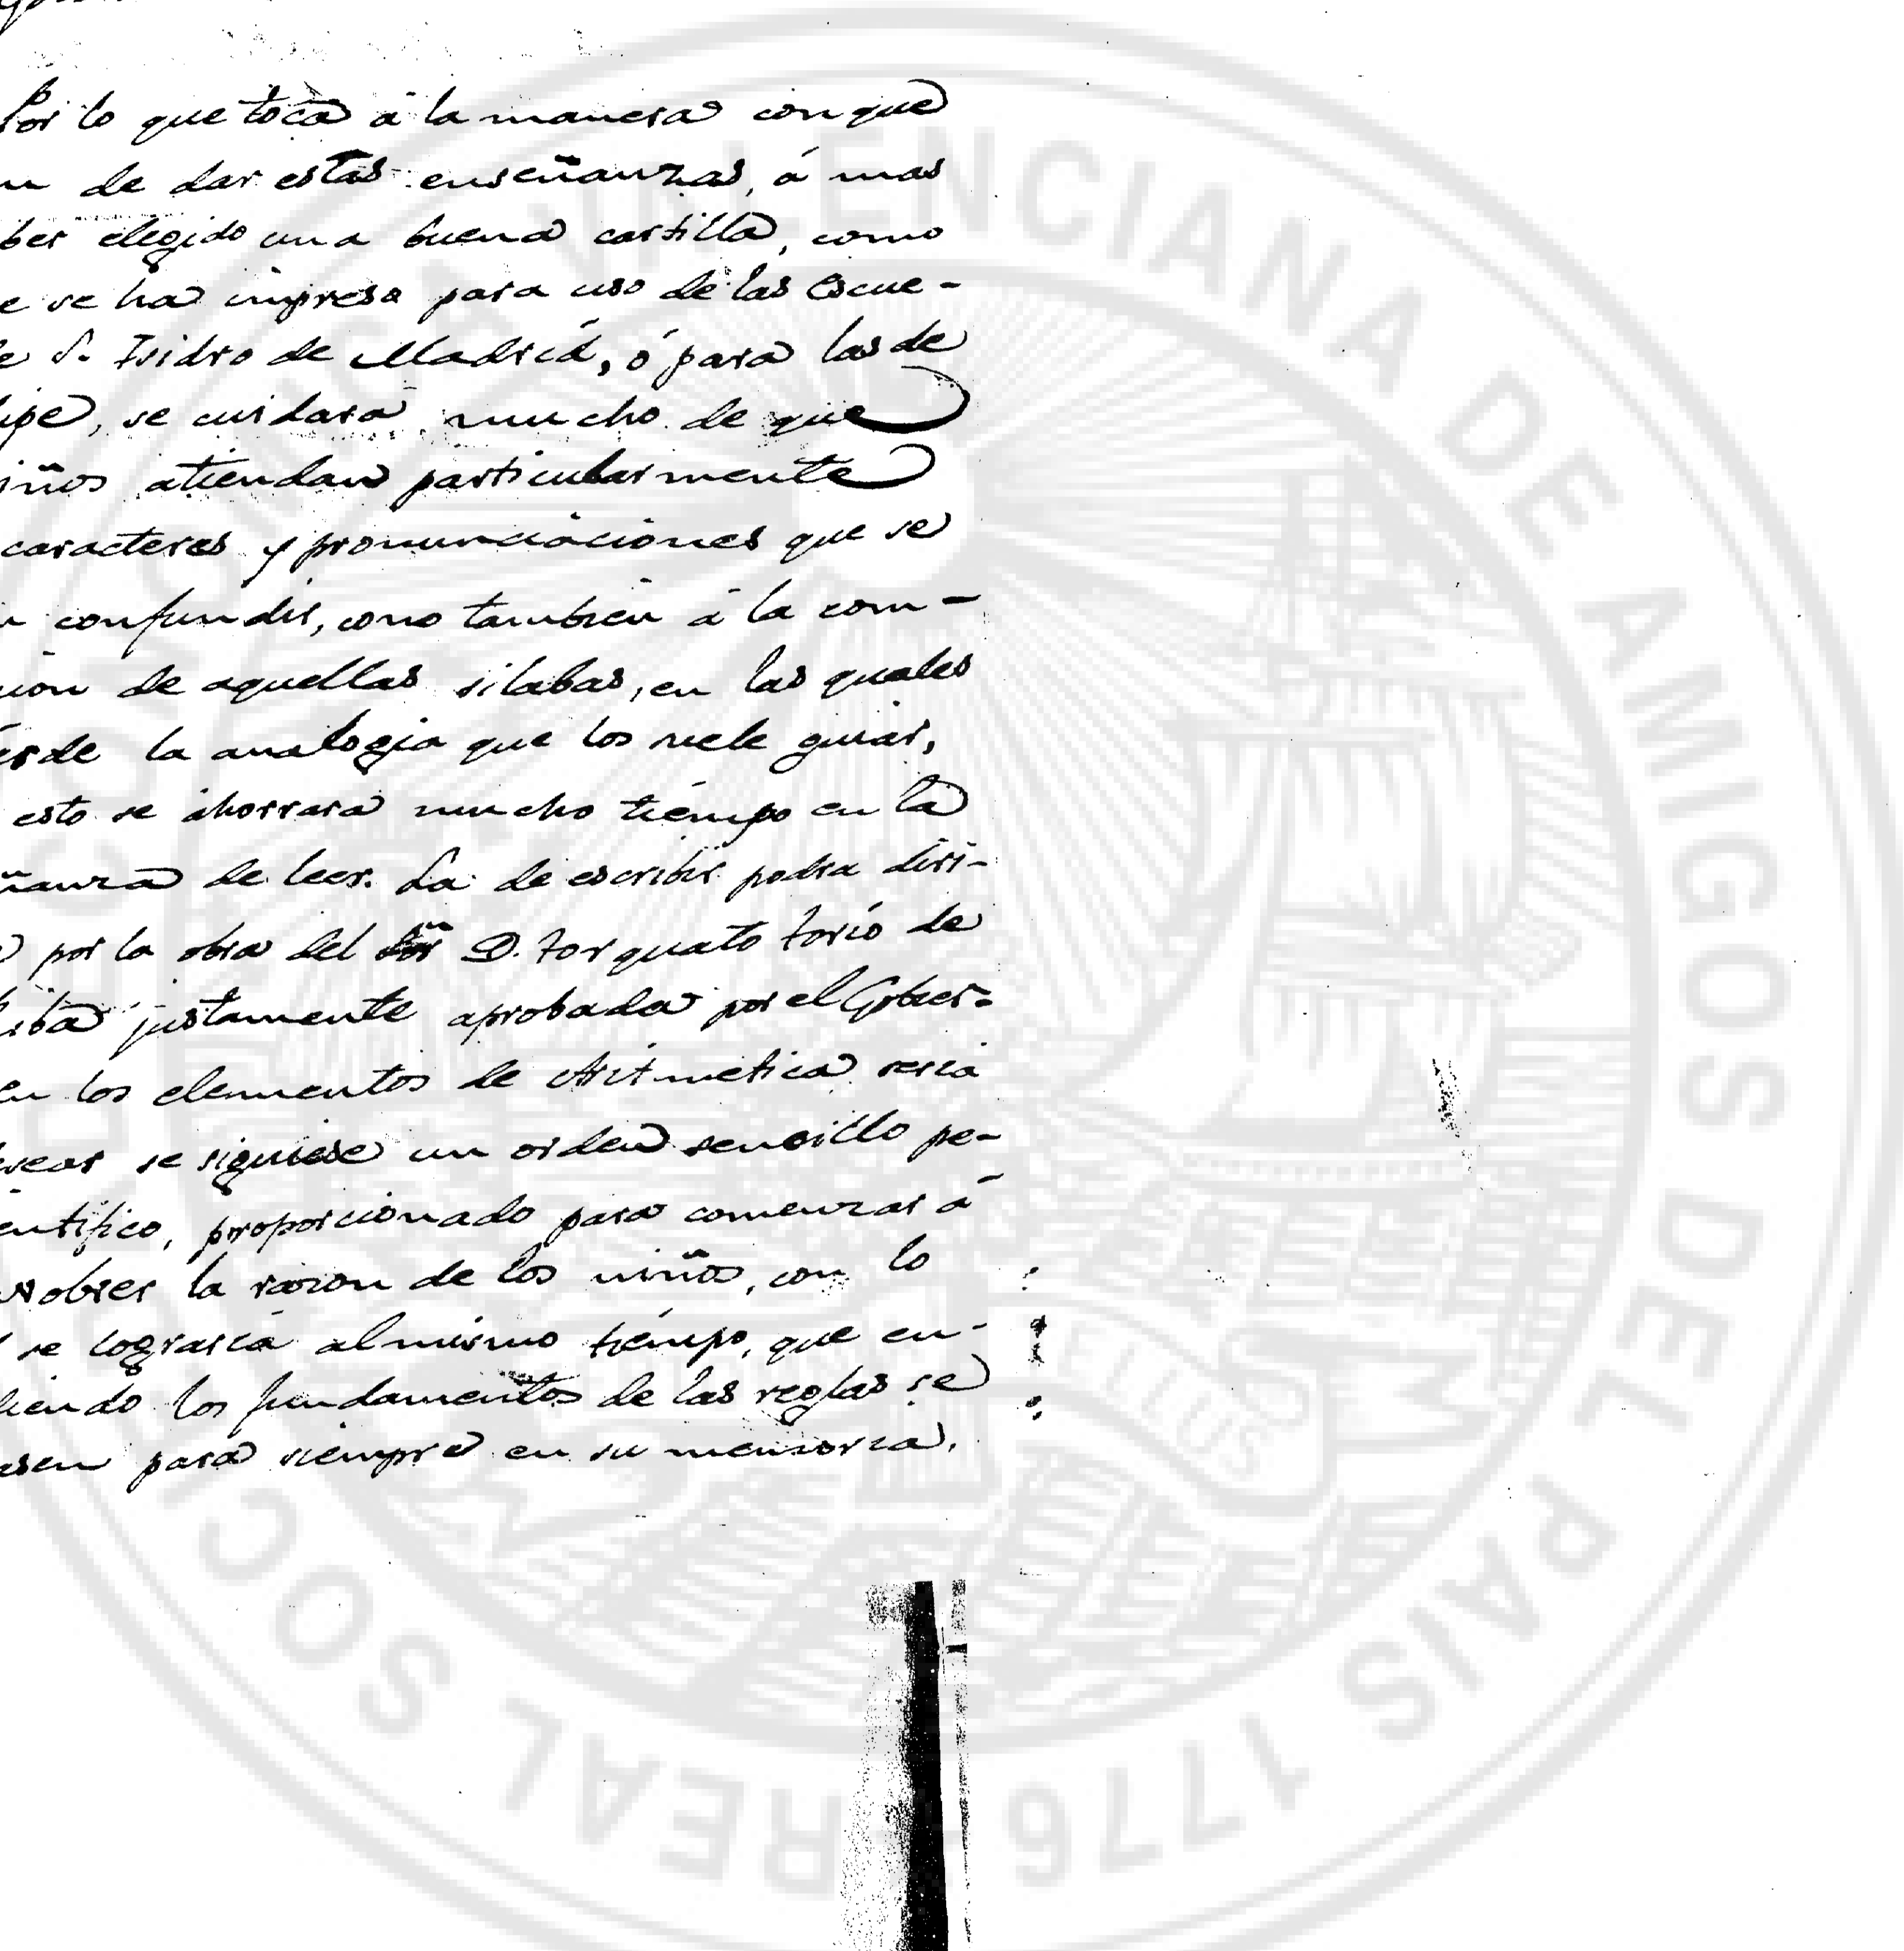 Por lo que toca á la manera con que
de dar estas enseñanzas, á mas
ber elegido una buena cartilla, como
e se ha impreso para uso de las Escue-
e S. Isidro de Madrid, ó para las de
lipe, se cuidara mucho de que
iños atiendan particularmente
caracteres y pronunciaciones que se
n confundir, como tambien á la com-
cion de aquellas silabas, en las quales
erde la analogia que los suele guiar,
esto se ahorrara mucho tiempo en la
ñanza de leer. La de escribir podra diri-
por la obra del Sōr D. Torquato Torio de
Riba justamente aprobada por el Gober-
en los elementos de Aritmetica seria
esear se siguiese un orden sencillo pe-
entifico, proporcionado para comenzar á
la razon de los niños, con lo
se lograria al mismo tiempo, que en-
diendo los fundamentos de las reglas se
asen para siempre en su memoria.
REAL SOCI VALENCIANA DE AMIGOS DEL PAIS 1776